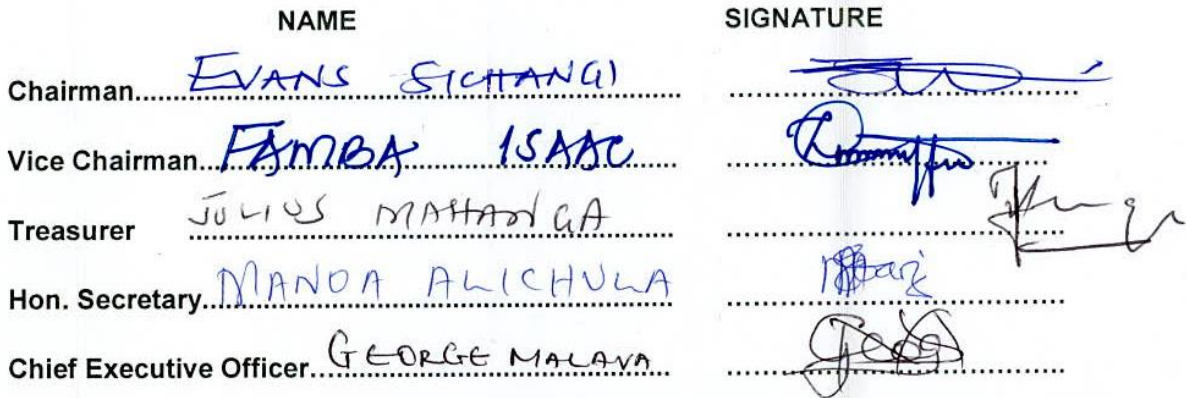 NAME SIGNATURE
Chairman EVANS SICHANGI
Vice Chairman FAMBA ISAAC
Treasurer JULIUS MAHANGA
Hon. Secretary MANOA ALICHULA
Chief Executive Officer GEORGE MALAVA